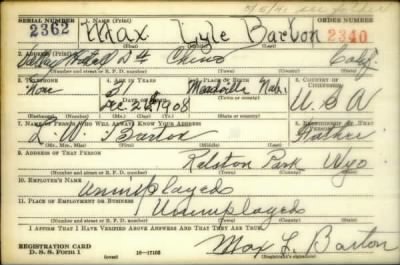 SERIAL NUMBER 1. NAME (Print) ORDER NUMBER
2362 Max Lyle Barton 2340
(First) (Middle) (Last)
2. ADDRESS (Print)
Hotel Chino Calif
(Number and street or R. F. D. number) (Town) (County) (State)
3. TELEPHONE 4. AGE IN YEARS 5. PLACE OF BIRTH 6. COUNTRY OF CITIZENSHIP
None 31 Nebr
DATE OF BIRTH
Dec 26 1908 U.S.A
(Town or county)
(Exchange) (No.) (Mo.) (Day) (Yr.) (State or country)
7. NAME OF PERSON WHO WILL ALWAYS KNOW YOUR ADDRESS 8. RELATIONSHIP OF THAT PERSON
L. W. Barton Father
(Mr., Mrs., Miss) (First) (Middle) (Last)
9. ADDRESS OF THAT PERSON
Ralston Park Wyo
(Number and street or R. F. D. number) (Town) (County) (State)
10. EMPLOYER'S NAME
Unemployed
11. PLACE OF EMPLOYMENT OR BUSINESS
Unemployed
(Number and street or R. F. D. number) (Town) (County) (State)
I AFFIRM THAT I HAVE VERIFIED ABOVE ANSWERS AND THAT THEY ARE TRUE.
REGISTRATION CARD
D. S. S. Form 1 (over) 16—17105 Max L. Barton
(Registrant's signature)